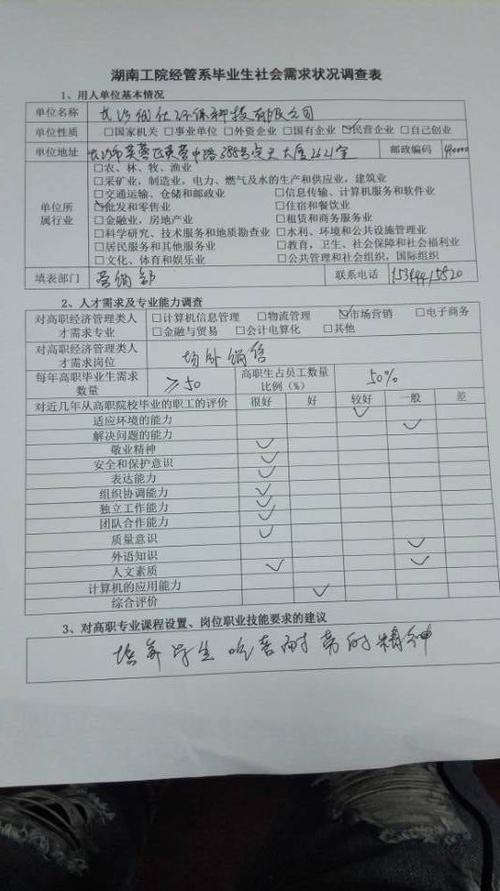 湖南工院经管系毕业生社会需求状况调查表
1、用人单位基本情况
单位名称 长沙优仕环保科技有限公司
单位性质 □国家机关 □事业单位 □外资企业 □国有企业 ☑民营企业 □自己创业
单位地址 长沙市芙蓉区芙蓉中路388号 大厦2621室 邮政编码 410000
单位所属行业
□农、林、牧、渔业
□采矿业,制造业,电力、燃气及水的生产和供应业,建筑业
□交通运输、仓储和邮政业 □信息传输、计算机服务和软件业
☑批发和零售业 □住宿和餐饮业
□金融业,房地产业 □租赁和商务服务业
□科学研究、技术服务和地质勘查业 □水利、环境和公共设施管理业
□居民服务和其他服务业 □教育,卫生、社会保障和社会福利业
□文化、体育和娱乐业 □公共管理和社会组织,国际组织
填表部门 营销部 联系电话
2、人才需求及专业能力调查
对高职经济管理类人才需求专业 □计算机信息管理 □物流管理 ☑市场营销 □电子商务
□金融与贸易 □会计电算化 □其他
对高职经济管理类人才需求岗位 场外销售
每年高职毕业生需求数量 ≥50 高职生占员工数量比例(%) 50%
对近几年从高职院校毕业的职工的评价 很好 好 较好 一般 差
适应环境的能力
解决问题的能力
敬业精神
安全和保护意识
表达能力
组织协调能力
独立工作能力
团队合作能力
质量意识
外语知识
人文素质
计算机的应用能力
综合评价
3、对高职专业课程设置、岗位职业技能要求的建议
培养学生吃苦耐劳的精神